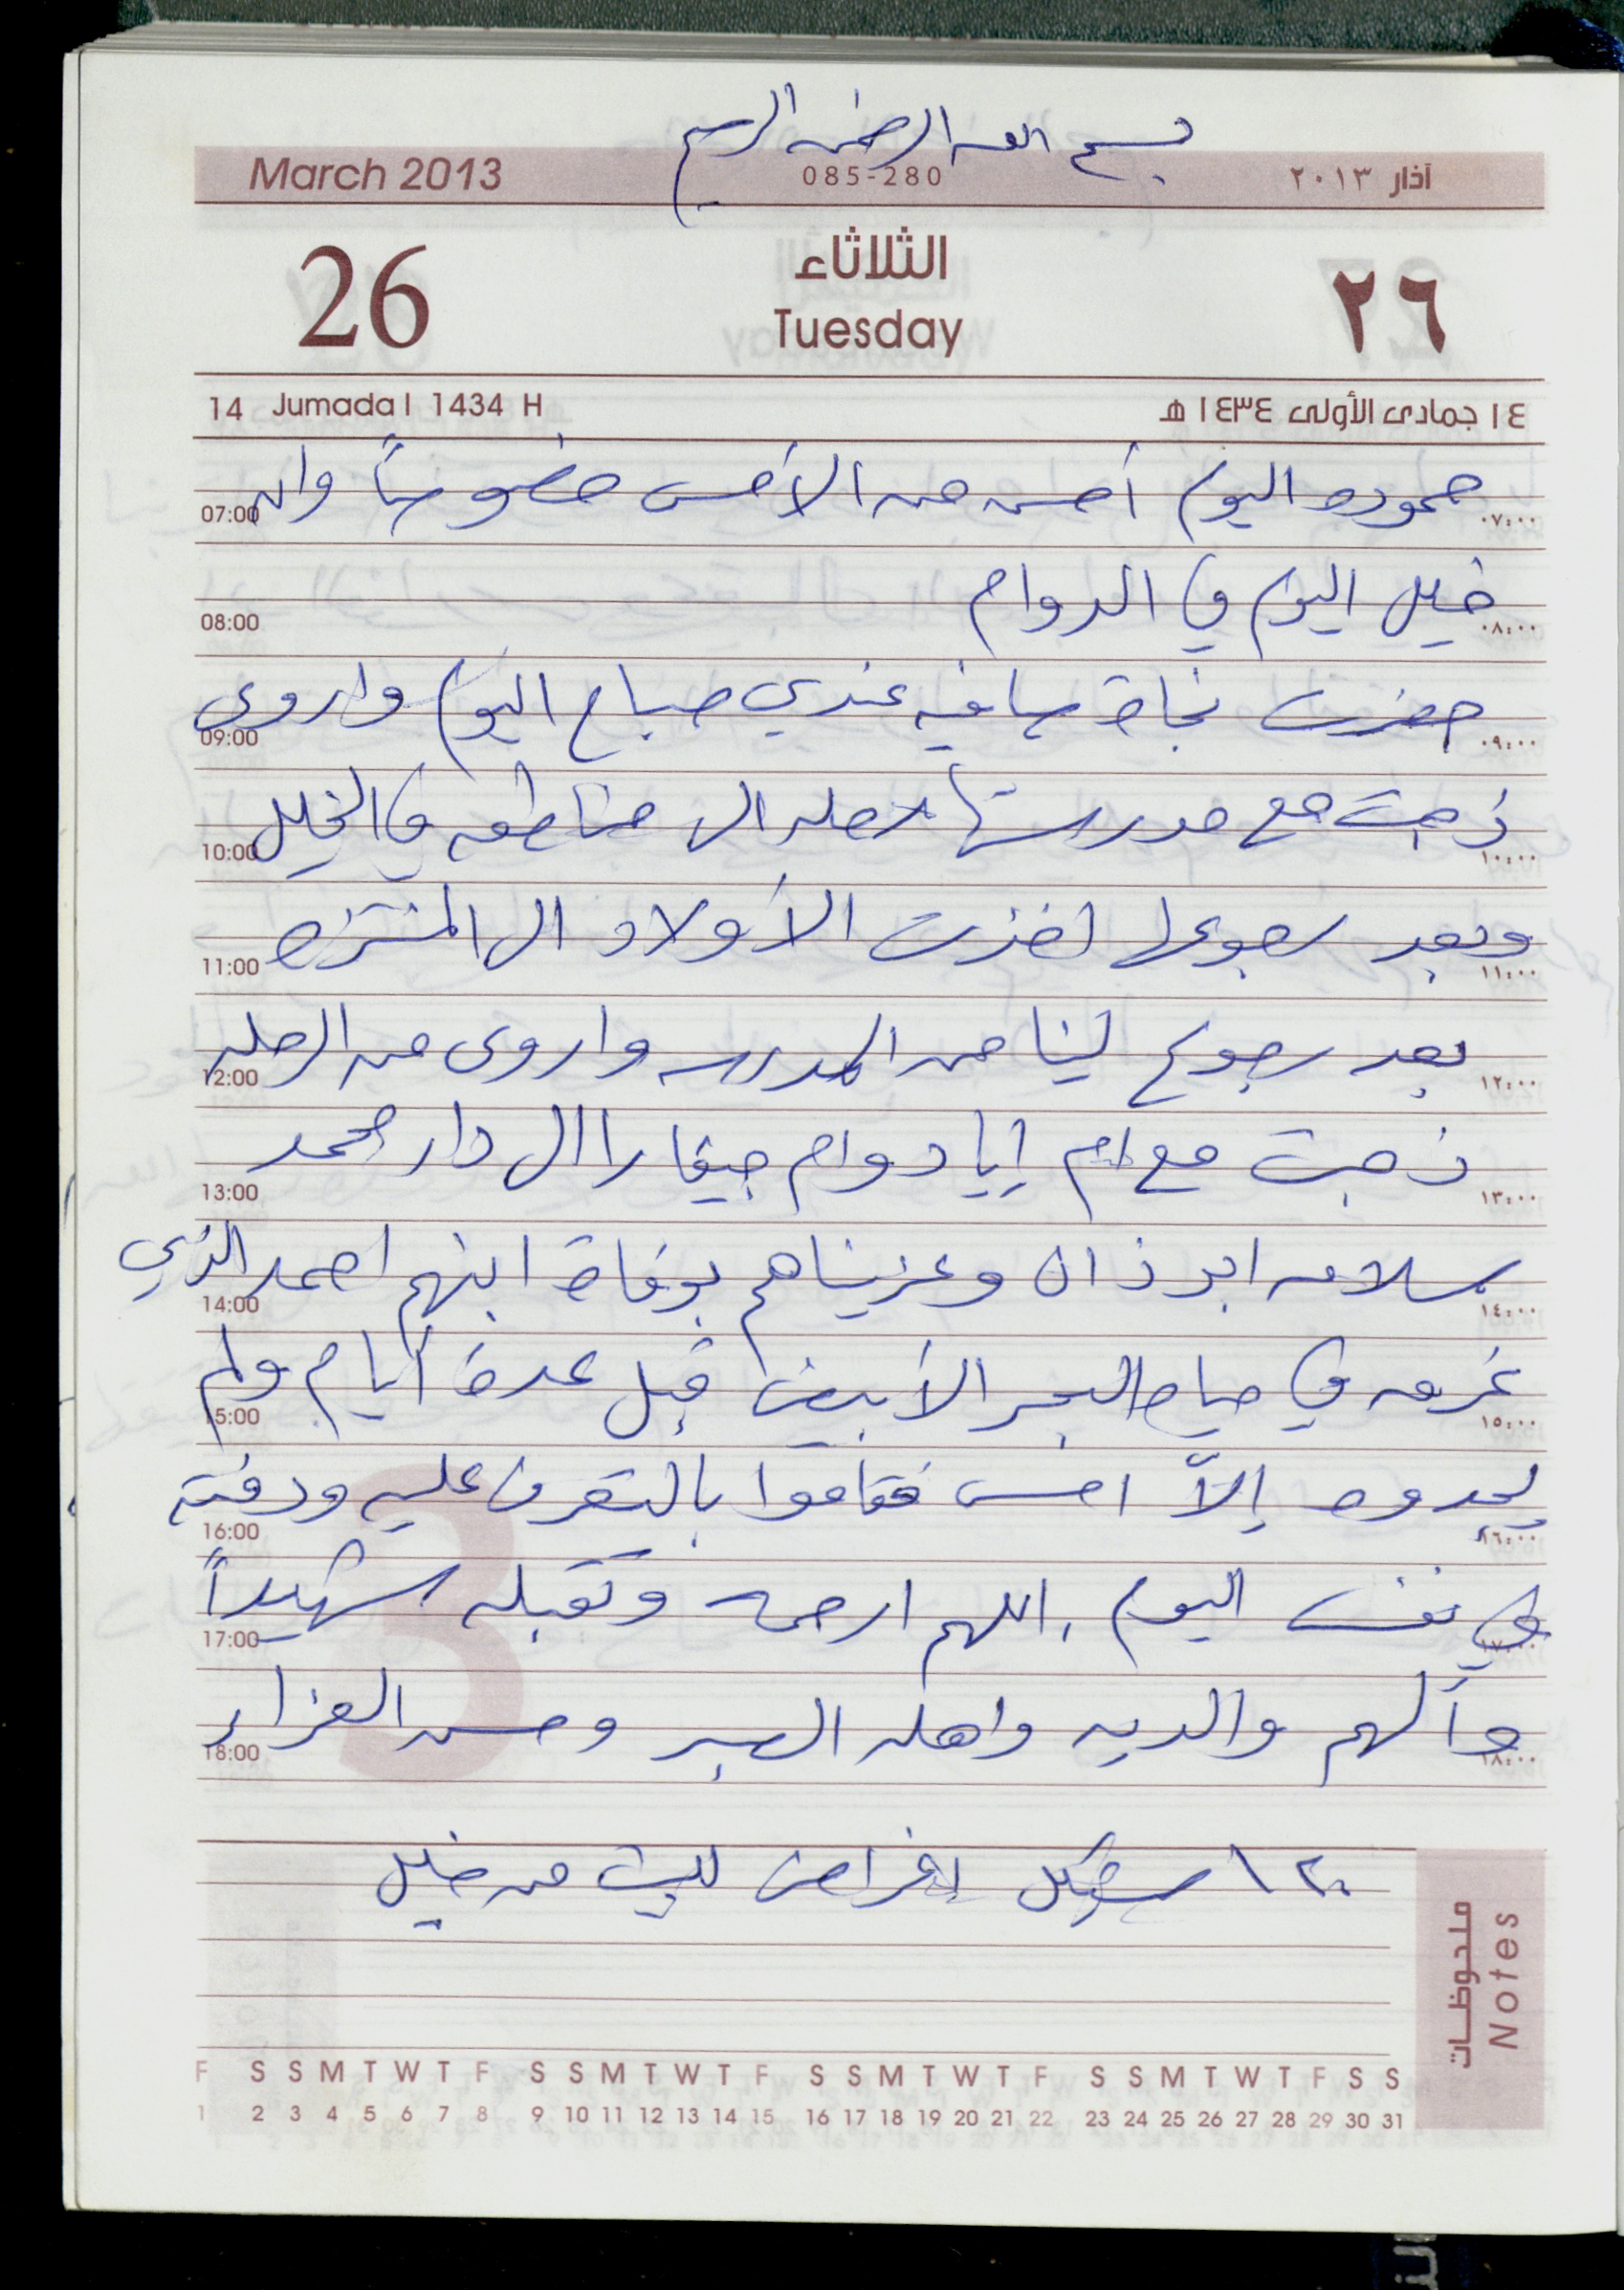 بسم الله الرحمن الرحيم
March 2013 085-280 آذار ٢٠١٣
26 الثلاثاء ٢٦
Tuesday
14 Jumada I 1434 H ١٤ جمادى الأولى ١٤٣٤ هـ
حموده اليوم أحسن من الأمس خصوصاً وان
07:00 ٠٧:٠٠
خليل اليوم في الدوام
08:00 ٠٨:٠٠
حضرت نجاة سافيه عندي صباح اليوم واروى
09:00 ٠٩:٠٠
ذهبت مع مدرستها لرحله الى مناطق في الخليل
10:00 ١٠:٠٠
وبعد رجوعها اخذت الأولاد الى المنتزه
11:00 ١١:٠٠
بعد رجوع لينا من المدرسه واروى من الرحله
12:00 ١٢:٠٠
ذهبت مع ام إيا دوام جيفارا الى دار محمد
13:00 ١٣:٠٠
سلامه ابو ذان وعزيناهم بوفاة ابنهم احمد الذي
14:00 ١٤:٠٠
غرق في مياه البحر الأبيض قبل عدة أيام ولم
15:00 ١٥:٠٠
يجدوه إلاّ امس فقاموا بالتعرف عليه ودفنه
16:00 ١٦:٠٠
في نفس اليوم . اللهم ارحمه وتقبله شهيداً
17:00 ١٧:٠٠
وألهم والديه واهله الصبر وحسن العزاء
18:00 ١٨:٠٠
١٢٠ شيكل اغراض لبيت من خليل
ملحوظات Notes
F S S M T W T F S S M T W T F S S M T W T F S S M T W T F S S
1 2 3 4 5 6 7 8 9 10 11 12 13 14 15 16 17 18 19 20 21 22 23 24 25 26 27 28 29 30 31